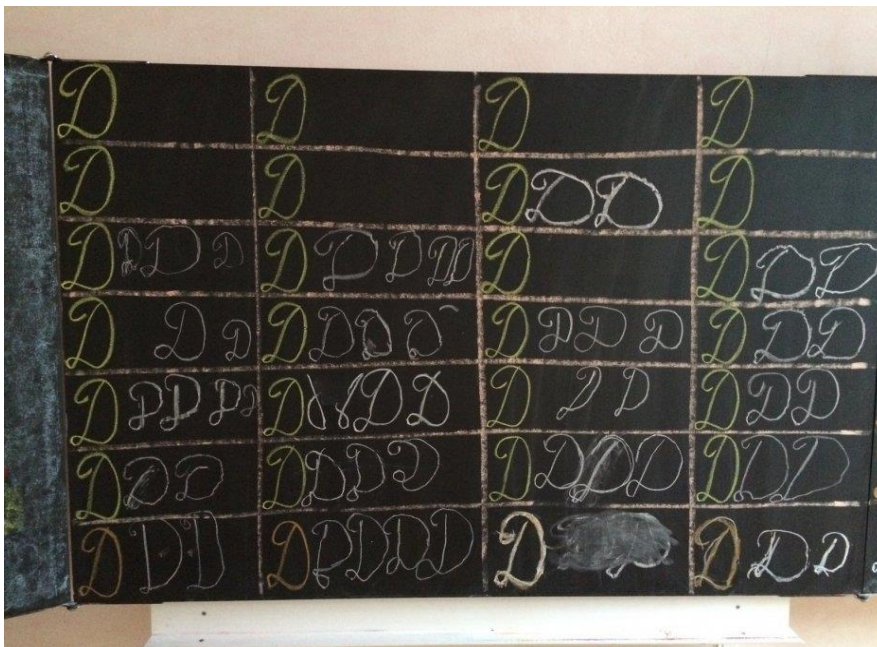 D D D D
D D D D D D
D D D D D D D D D D D D D
D D D D D D D D D D D D D D
D D D D D D D D D D D D D D
D D D D D D D D D D D D D D
D D D D D D D D D D D D D